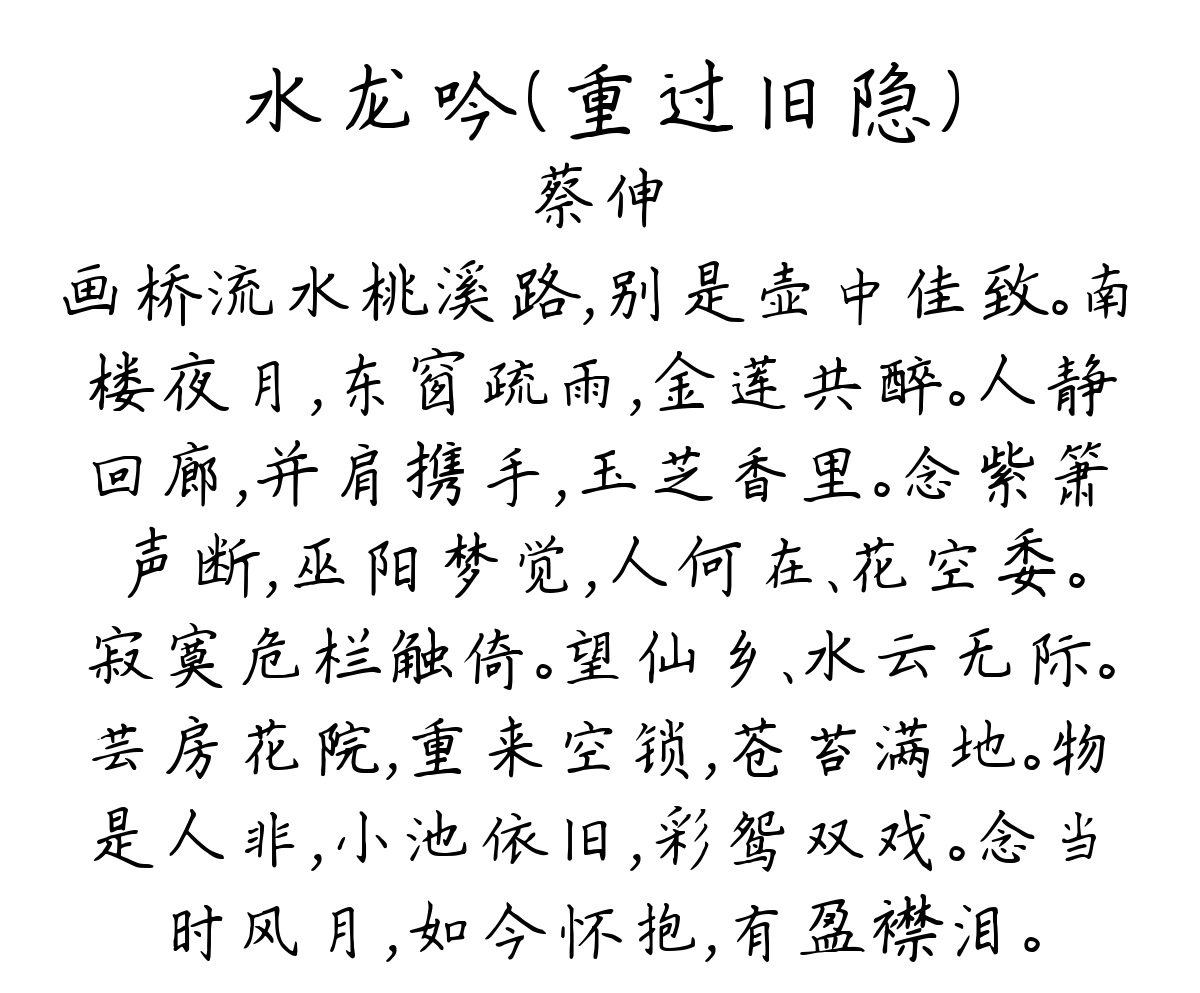 水龙吟(重过旧隐)
蔡伸
画桥流水桃溪路,别是壶中佳致。南
楼夜月,东窗疏雨,金莲共醉。人静
回廊,并肩携手,玉芝香里。念紫箫
声断,巫阳梦觉,人何在、花空委。
寂寞危栏触倚。望仙乡、水云无际。
芸房花院,重来空锁,苍苔满地。物
是人非,小池依旧,彩鸳双戏。念当
时风月,如今怀抱,有盈襟泪。